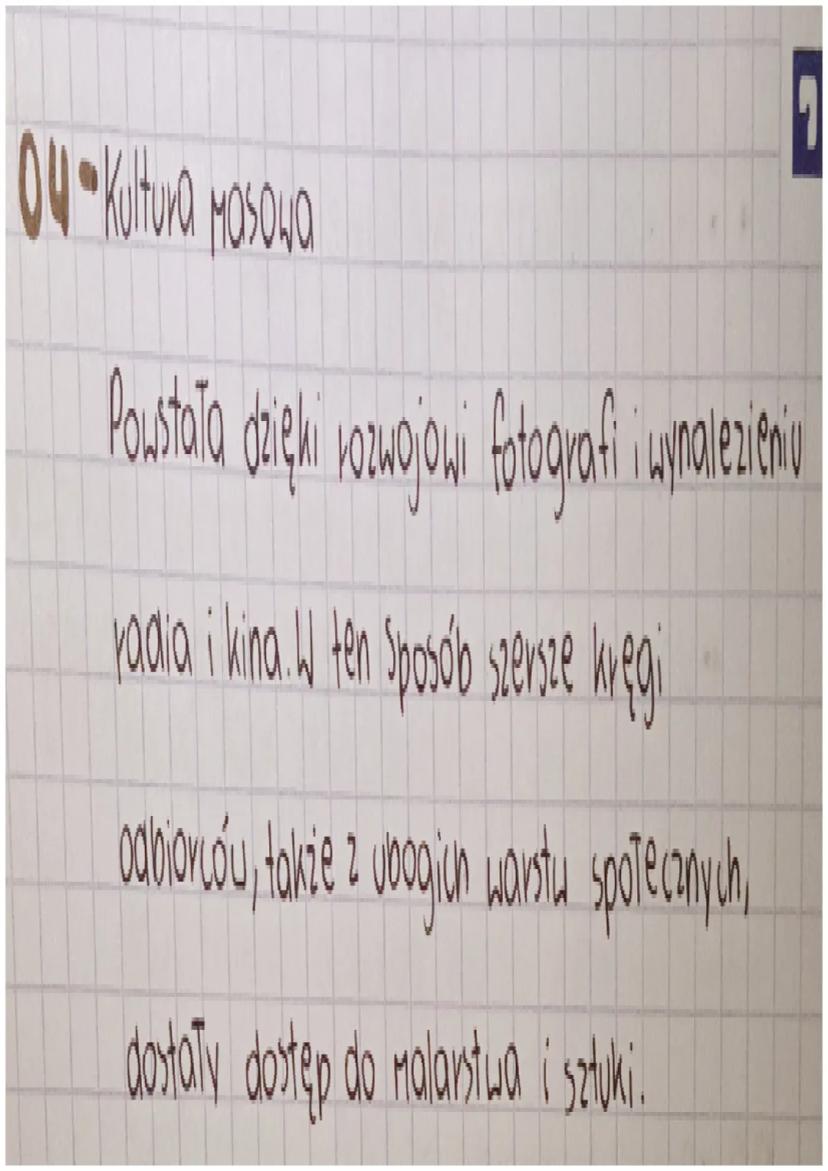 04-Kultura masowa
Powstała dzięki rozwojowi fotografi i wynalezieniu
radia i kina. W ten sposób szersze kręgi
odbiorców, także z ubogich warstw społecznych,
dostały dostęp do malarstwa i sztuki.